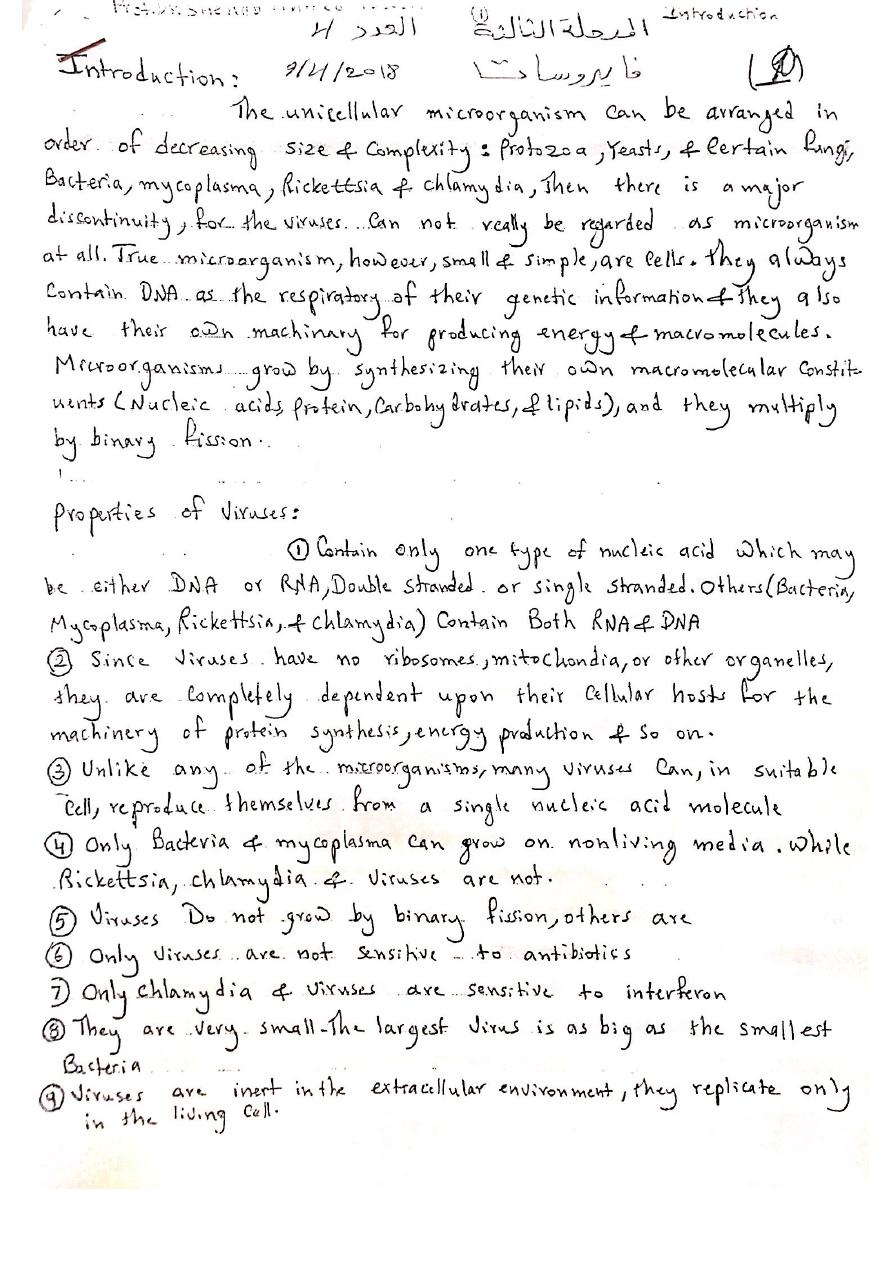 Introduction
العدد 4 المرحلة الثالثة (1)
Introduction: 9/4/2018 فايروسات (1)
The unicellular microorganism can be arranged in
order of decreasing size & Complexity: Protozoa, Yeasts, & Certain Fungi,
Bacteria, mycoplasma, Rickettsia & chlamydia, Then there is a major
discontinuity, for the viruses Can not really be regarded as microorganism
at all. True microarganism, however, small & simple, are Cells. they always
Contain DNA as the respiratory of their genetic information & They also
have their own machinary for producing energy & macromolecules.
Microorganisms grow by synthesizing their own macromolecular Constit-
uents (Nucleic acids, Protein, Carbohydrates, & lipids), and they multiply
by binary fission.
Properties of Viruses:
① Contain only one type of nucleic acid which may
be either DNA or RNA, Double stranded or single stranded. Others (Bacteria,
Mycoplasma, Rickettsia, & chlamydia) Contain Both RNA & DNA
② Since Viruses have no ribosomes, mitochondia, or other organelles,
they are completely dependent upon their Cellular hosts for the
machinery of protein synthesis, energy production & so on.
③ Unlike any of the microorganisms, many viruses Can, in suitable
Cell, reproduce themselves from a single nucleic acid molecule
④ Only Bacteria & mycoplasma can grow on nonliving media. while
Rickettsia, chlamydia & Viruses are not.
⑤ Viruses Do not grow by binary fission, others are
⑥ Only Viruses are not sensitive to antibiotics
⑦ Only Chlamydia & Viruses are sensitive to interferon
⑧ They are very small-The largest Virus is as big as the smallest
Bacteria
⑨ Viruses are inert in the extracellular environment, they replicate only
in the living Cell.